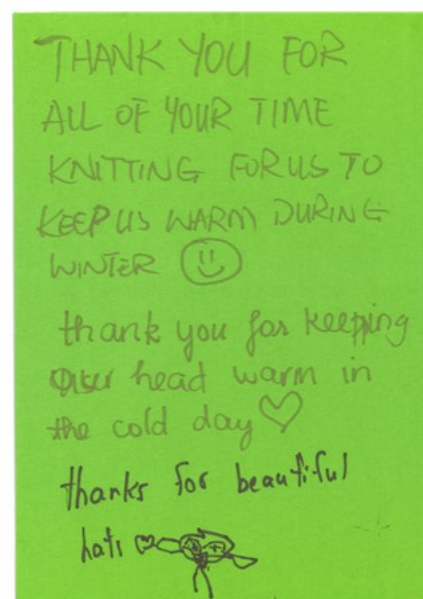 THANK YOU FOR
ALL OF YOUR TIME
KNITTING FOR US TO
KEEP US WARM DURING
WINTER
thank you for keepping
our head warm in
the cold day
thanks for beautiful
hats